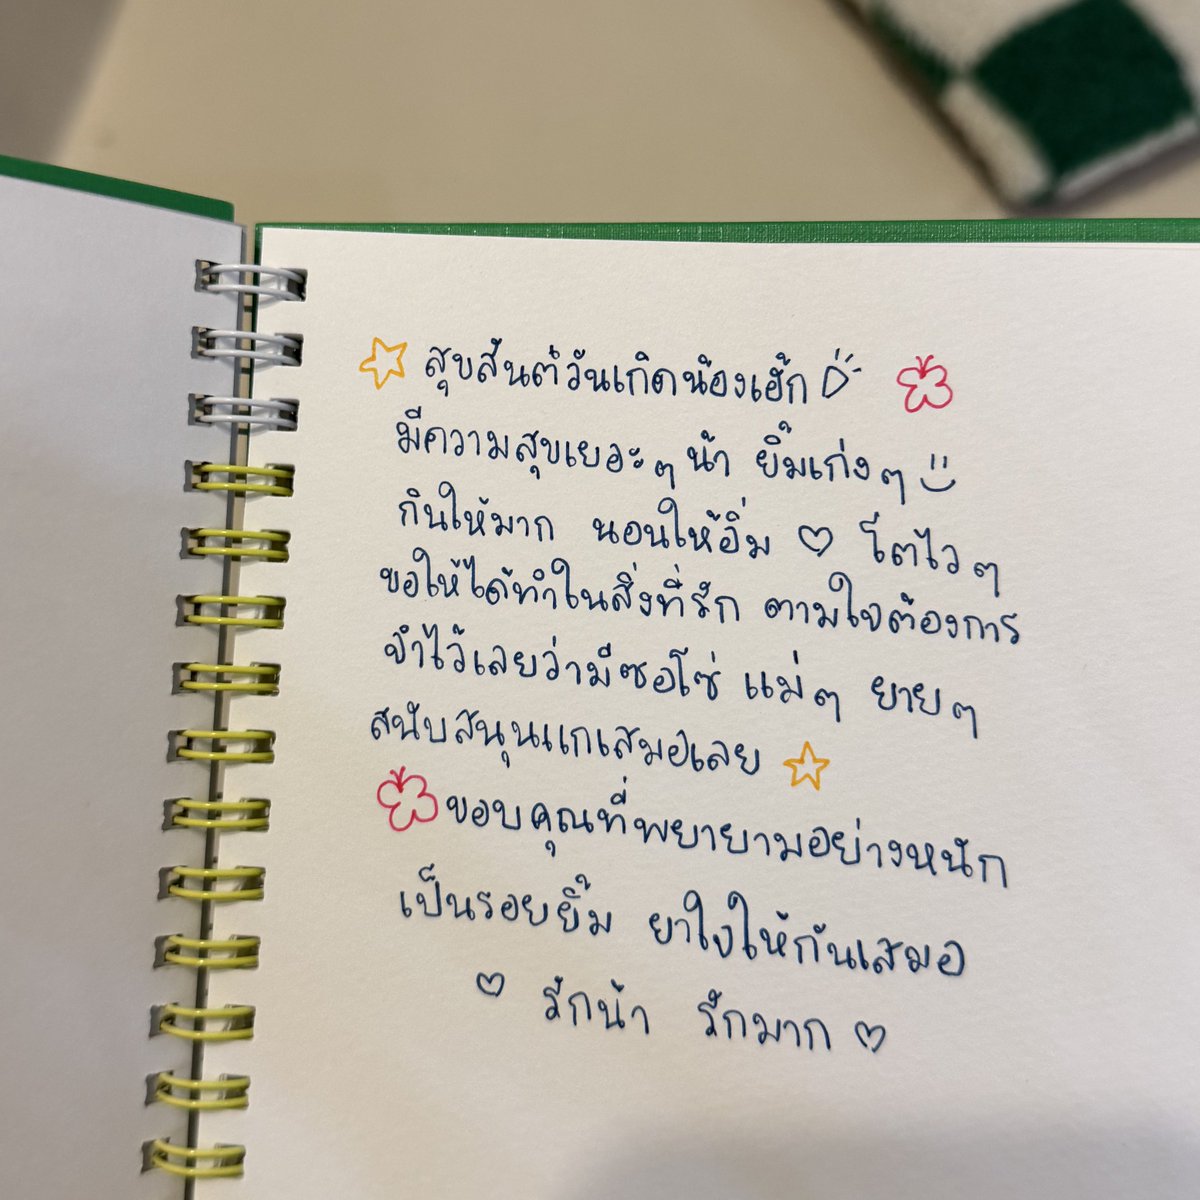 สุขสันต์วันเกิดน้องเฮ้ก
มีความสุขเยอะๆ น้า ยิ้มเก่งๆ
กินให้มาก นอนให้อิ่ม โตไวๆ
ขอให้ได้ทำในสิ่งที่รัก ตามใจต้องการ
จำไว้เลยว่ามีซอโซ่ แม่ๆ ยายๆ
สนับสนุนแกเสมอเลย
ขอบคุณที่พยายามอย่างหนัก
เป็นรอยยิ้ม ยาใจให้กันเสมอ
รักน้า รักมาก